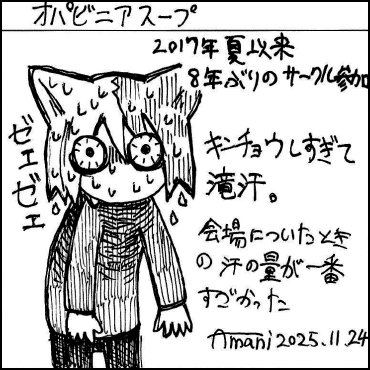 オパビニアスープ
2017年夏以来
8年ぶりのサークル参加
ゼェ
ゼェ
キンチョウしすぎて
滝汗。
会場についたとき
の汗の量が一番
すごかった
Amani 2025.11.24